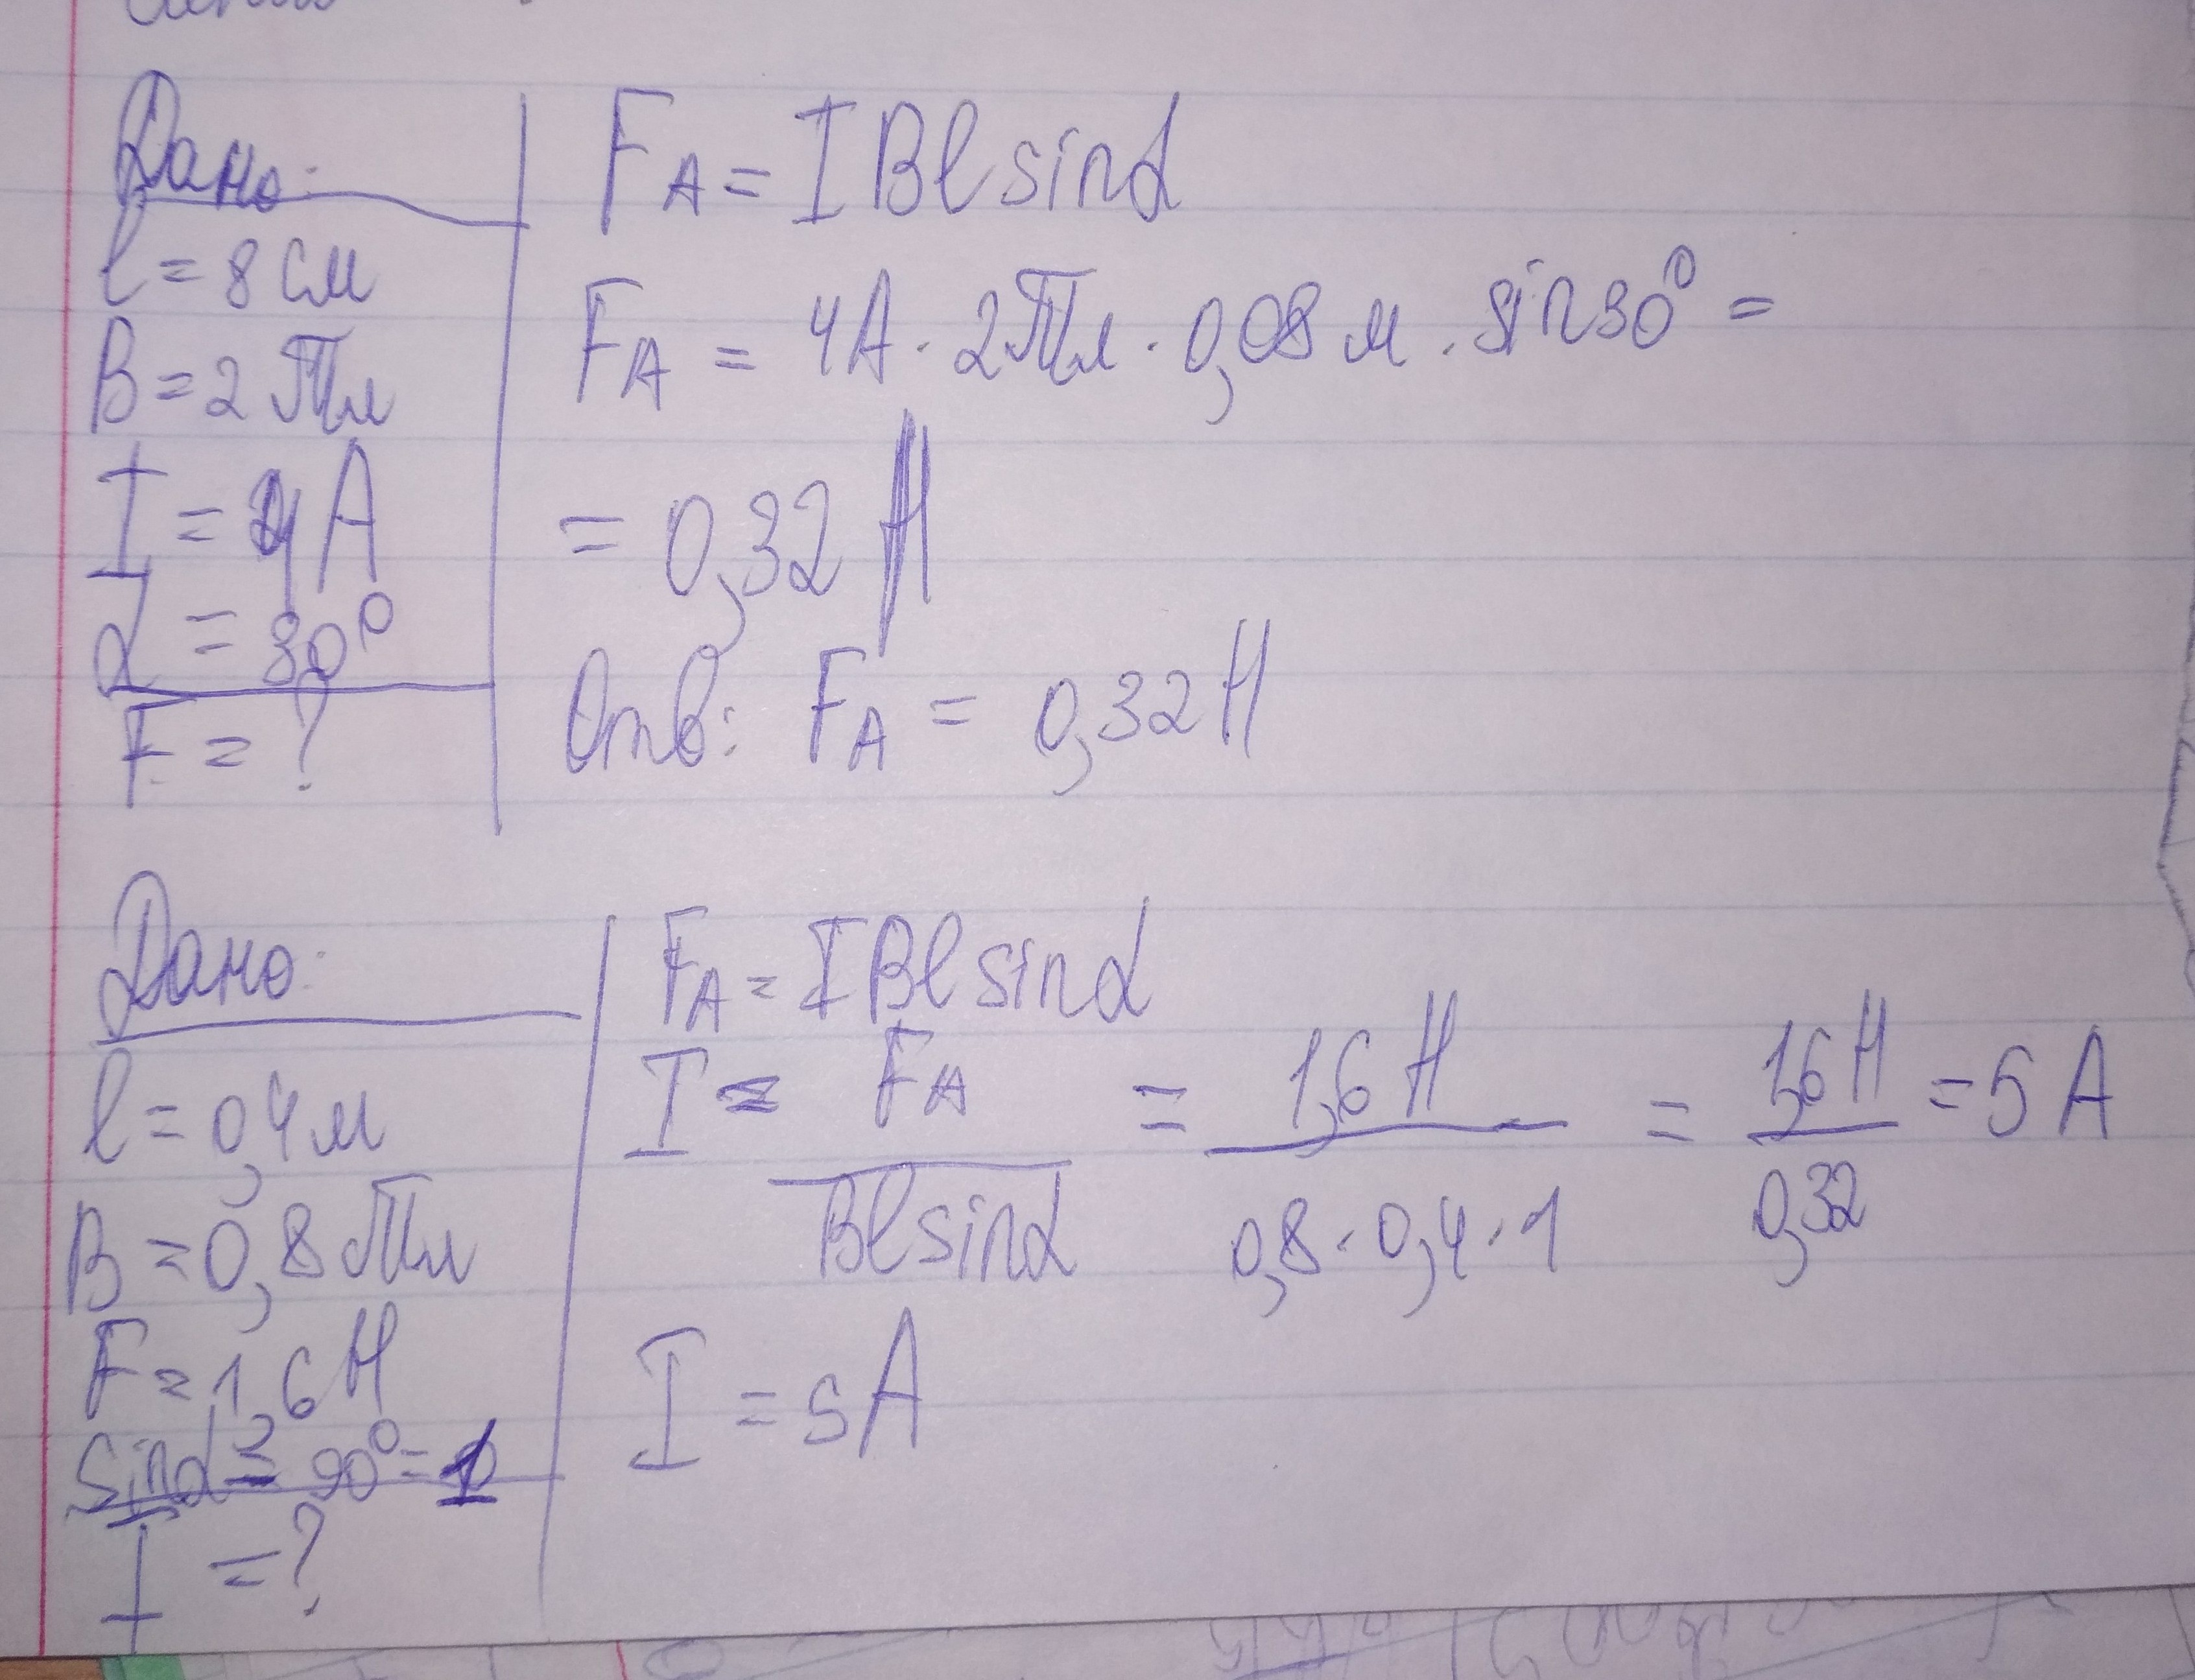 Дано:
l = 8 см
B = 2 Тл
I = 4 А
α = 30°
F = ?
F A = I B l sinα
F A = 4А · 2Тл · 0,08 м · sin30° =
= 0,32 Н
Отв: F A = 0,32 Н
Дано:
l = 0,4 м
B = 0,8 Тл
F = 1,6 Н
sinα = 90° = 1
I = ?
F A = I B l sinα
I = F A / B l sinα = 1,6 Н / 0,8 · 0,4 · 1 = 1,6 Н / 0,32 = 5 А
I = 5 А